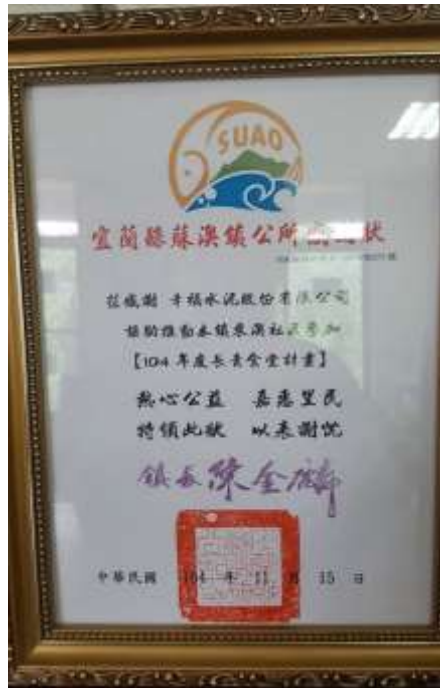 SUAO
宜蘭縣蘇澳鎮公所感謝狀
茲感謝 幸福水泥股份有限公司
協助推動本鎮東澳社區參加
【104年度長青食堂計畫】
熱心公益 嘉惠里民
特頒此狀 以表謝忱
鎮長陳金麟
中華民國 104 年 11 月 15 日